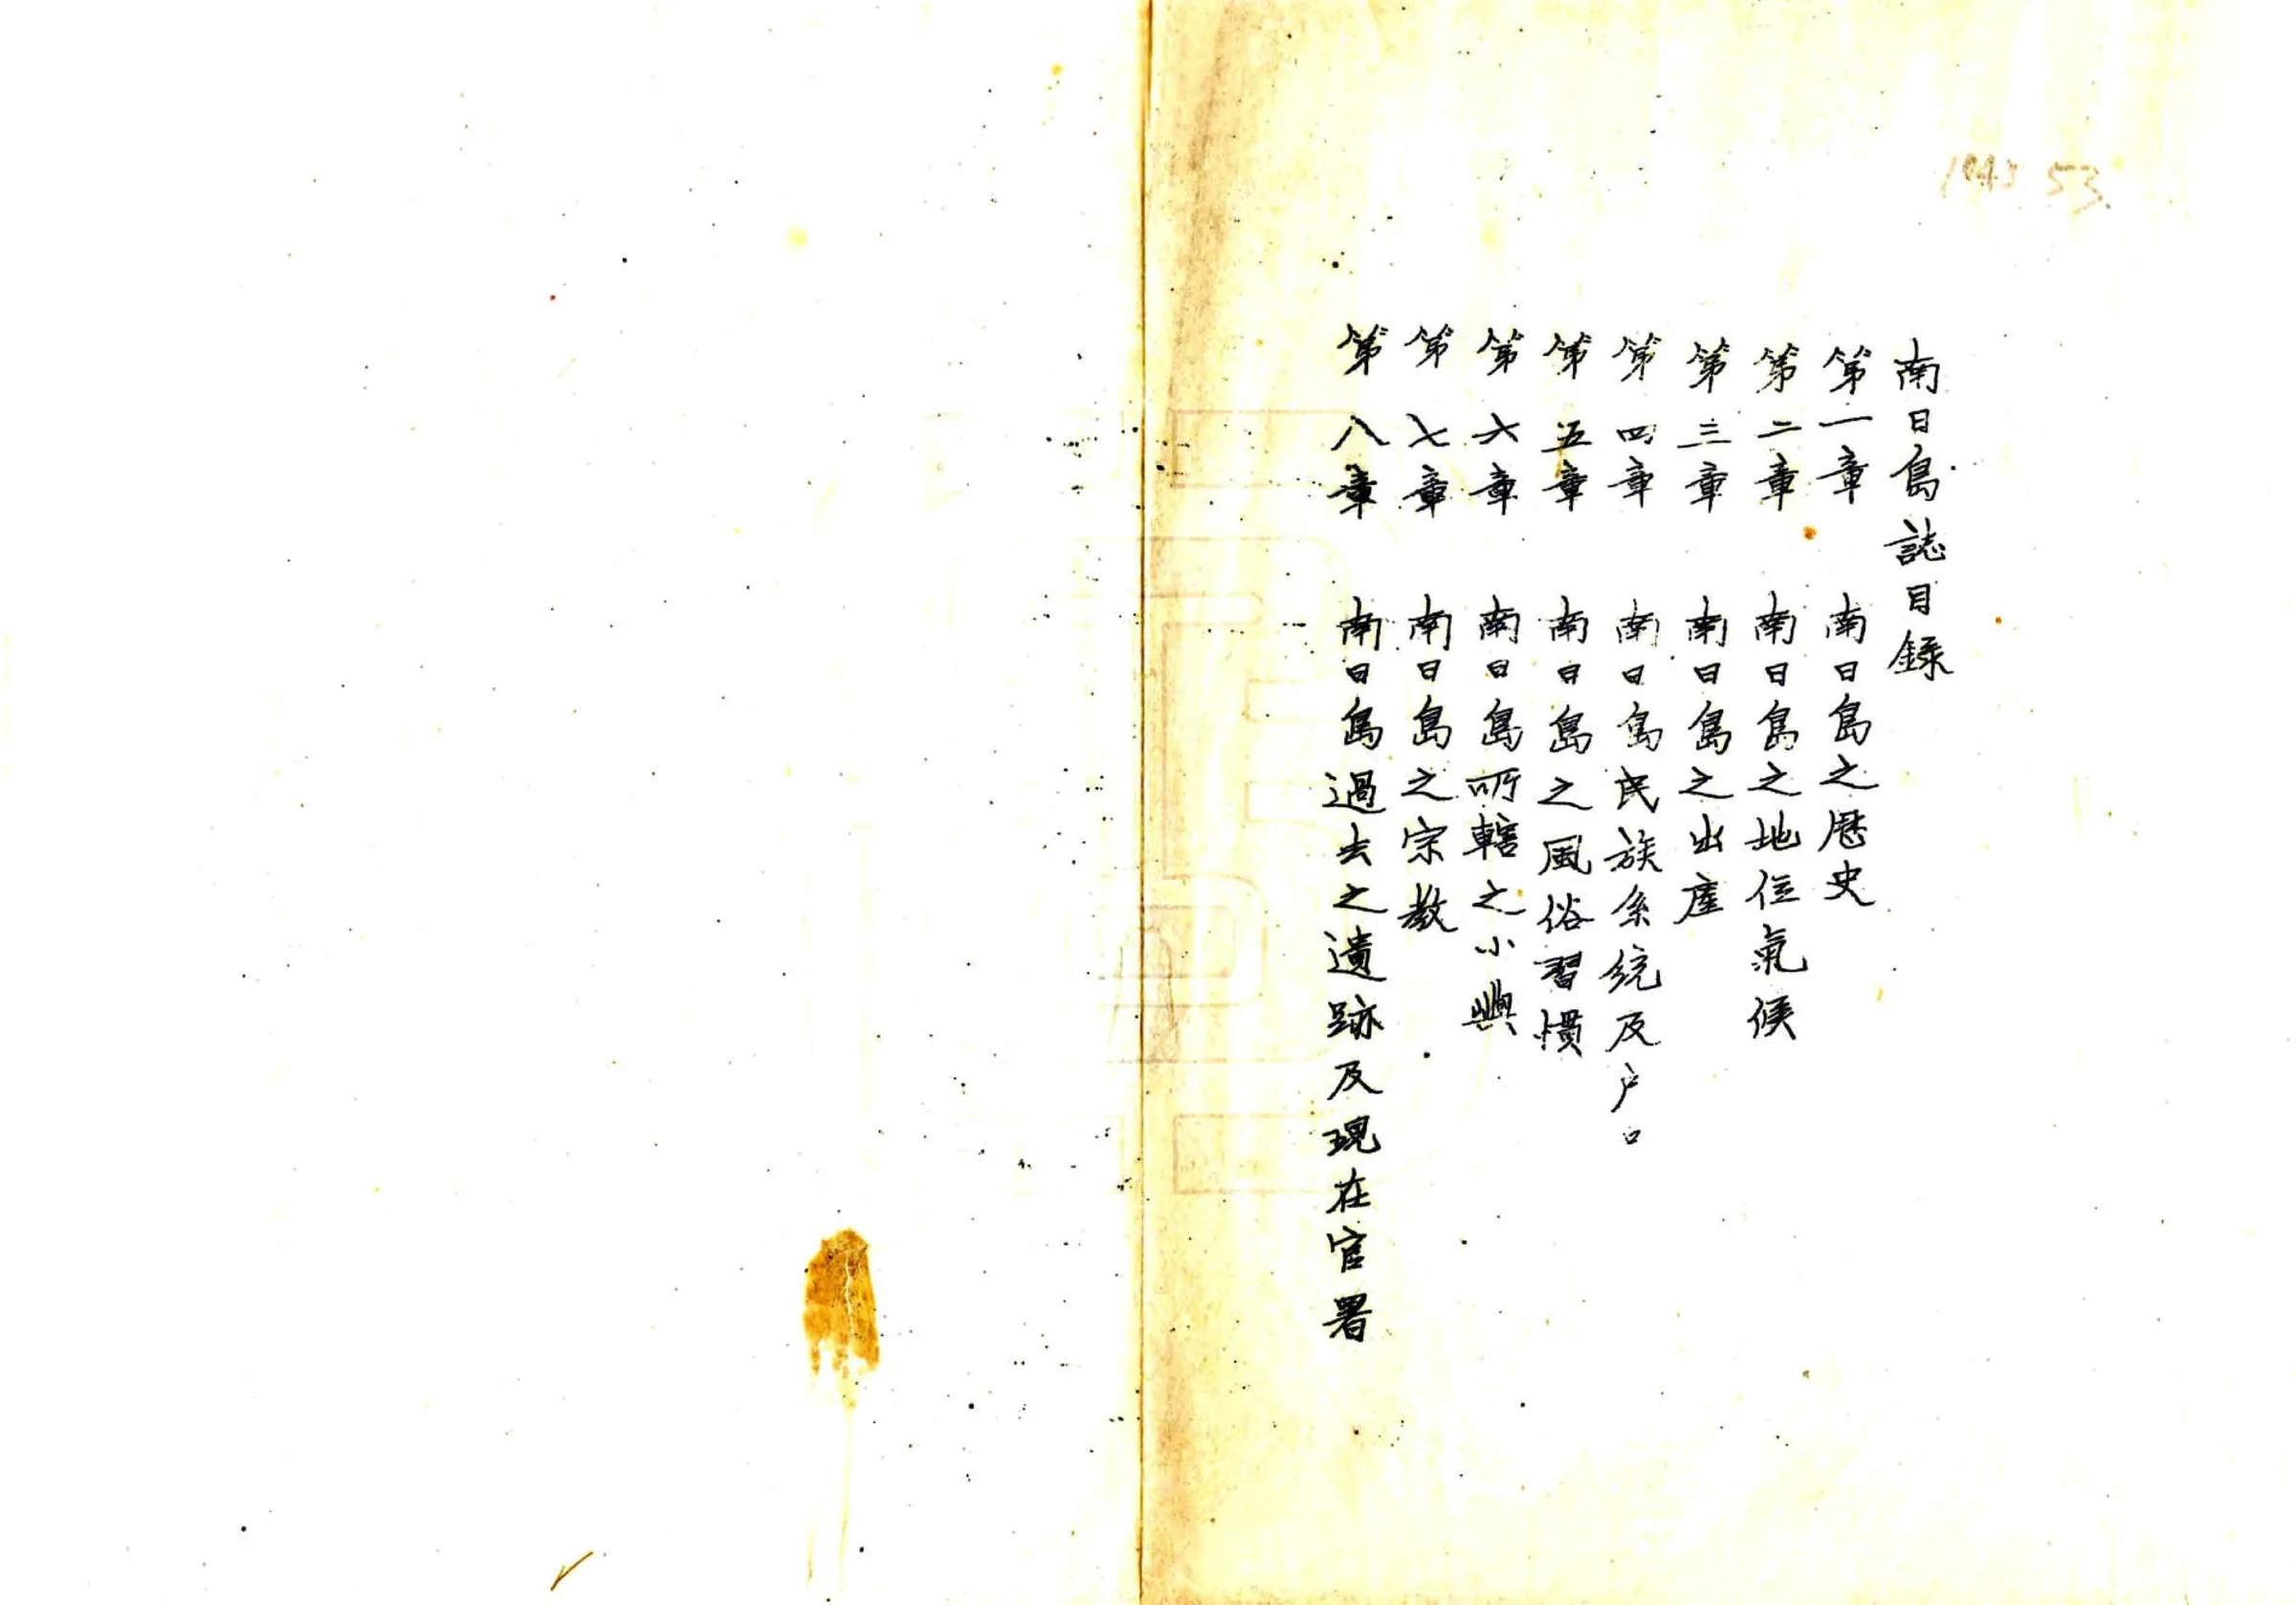 南日島誌目錄
第一章 南日島之歷史
第二章 南日島之地位氣候
第三章 南日島之出產
第四章 南日島民族系統及户口
第五章 南日島之風俗習慣
第六章 南日島所轄之小嶼
第七章 南日島之宗教
第八章 南日島過去之遺跡及現在官署
53